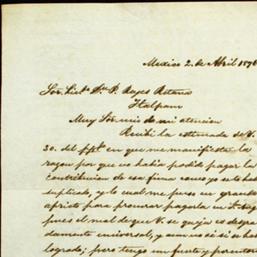 Mexico 2. de Abril 187
Sor. Lic. Dn. P. Reyes Retana
Tlalpam
Muy Sor. mio de mi atencion
Recibí la estimada de V.
30. del ppdo. en que me manifiesta la
razon por que no habia podido pagar la
contribucion de esa finca como yo se lo habia
suplicado, y lo cual me puso en grande
aprieto para procurar pagarla
pues el mal de que V. se queja es desgra
damente universal, y aun asi si se ha
logrado; pero tengo un fuerte y perentorio